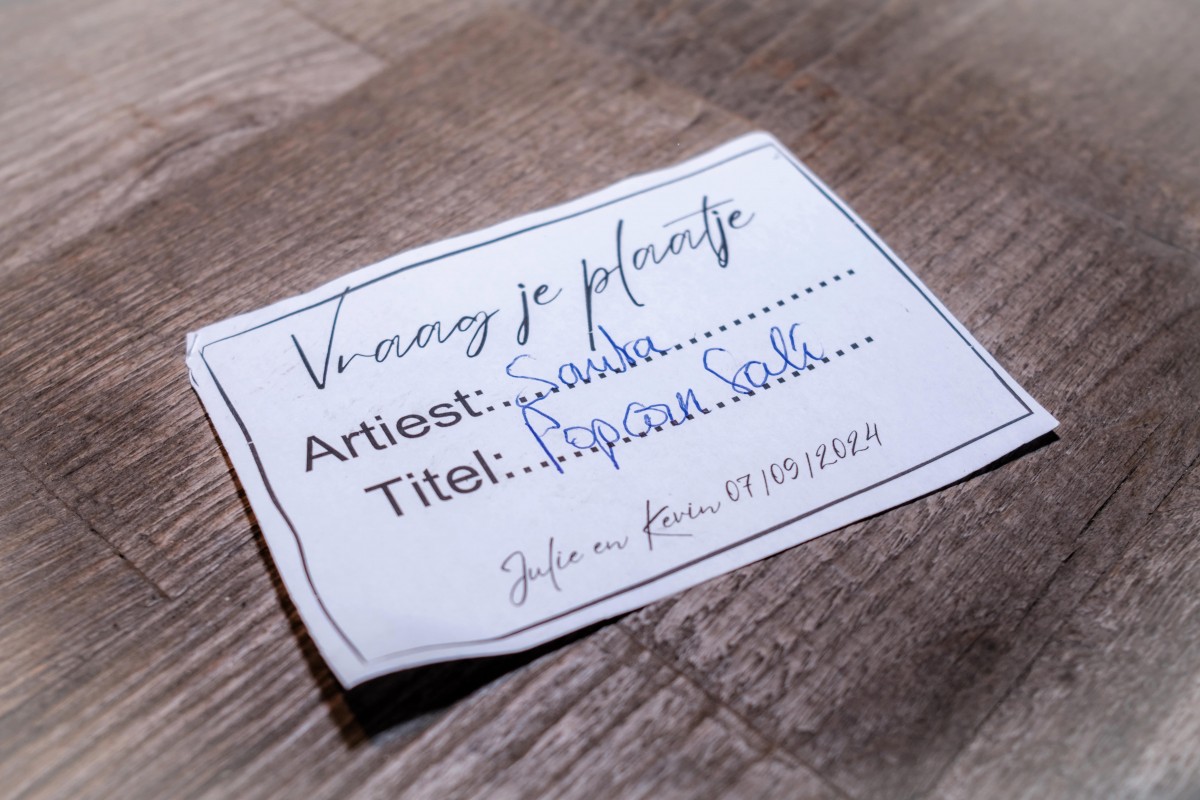 Vraag je plaatje
Artiest: Samba
Titel: Popcorn Salé
Julie en Kevin 07/09/2024